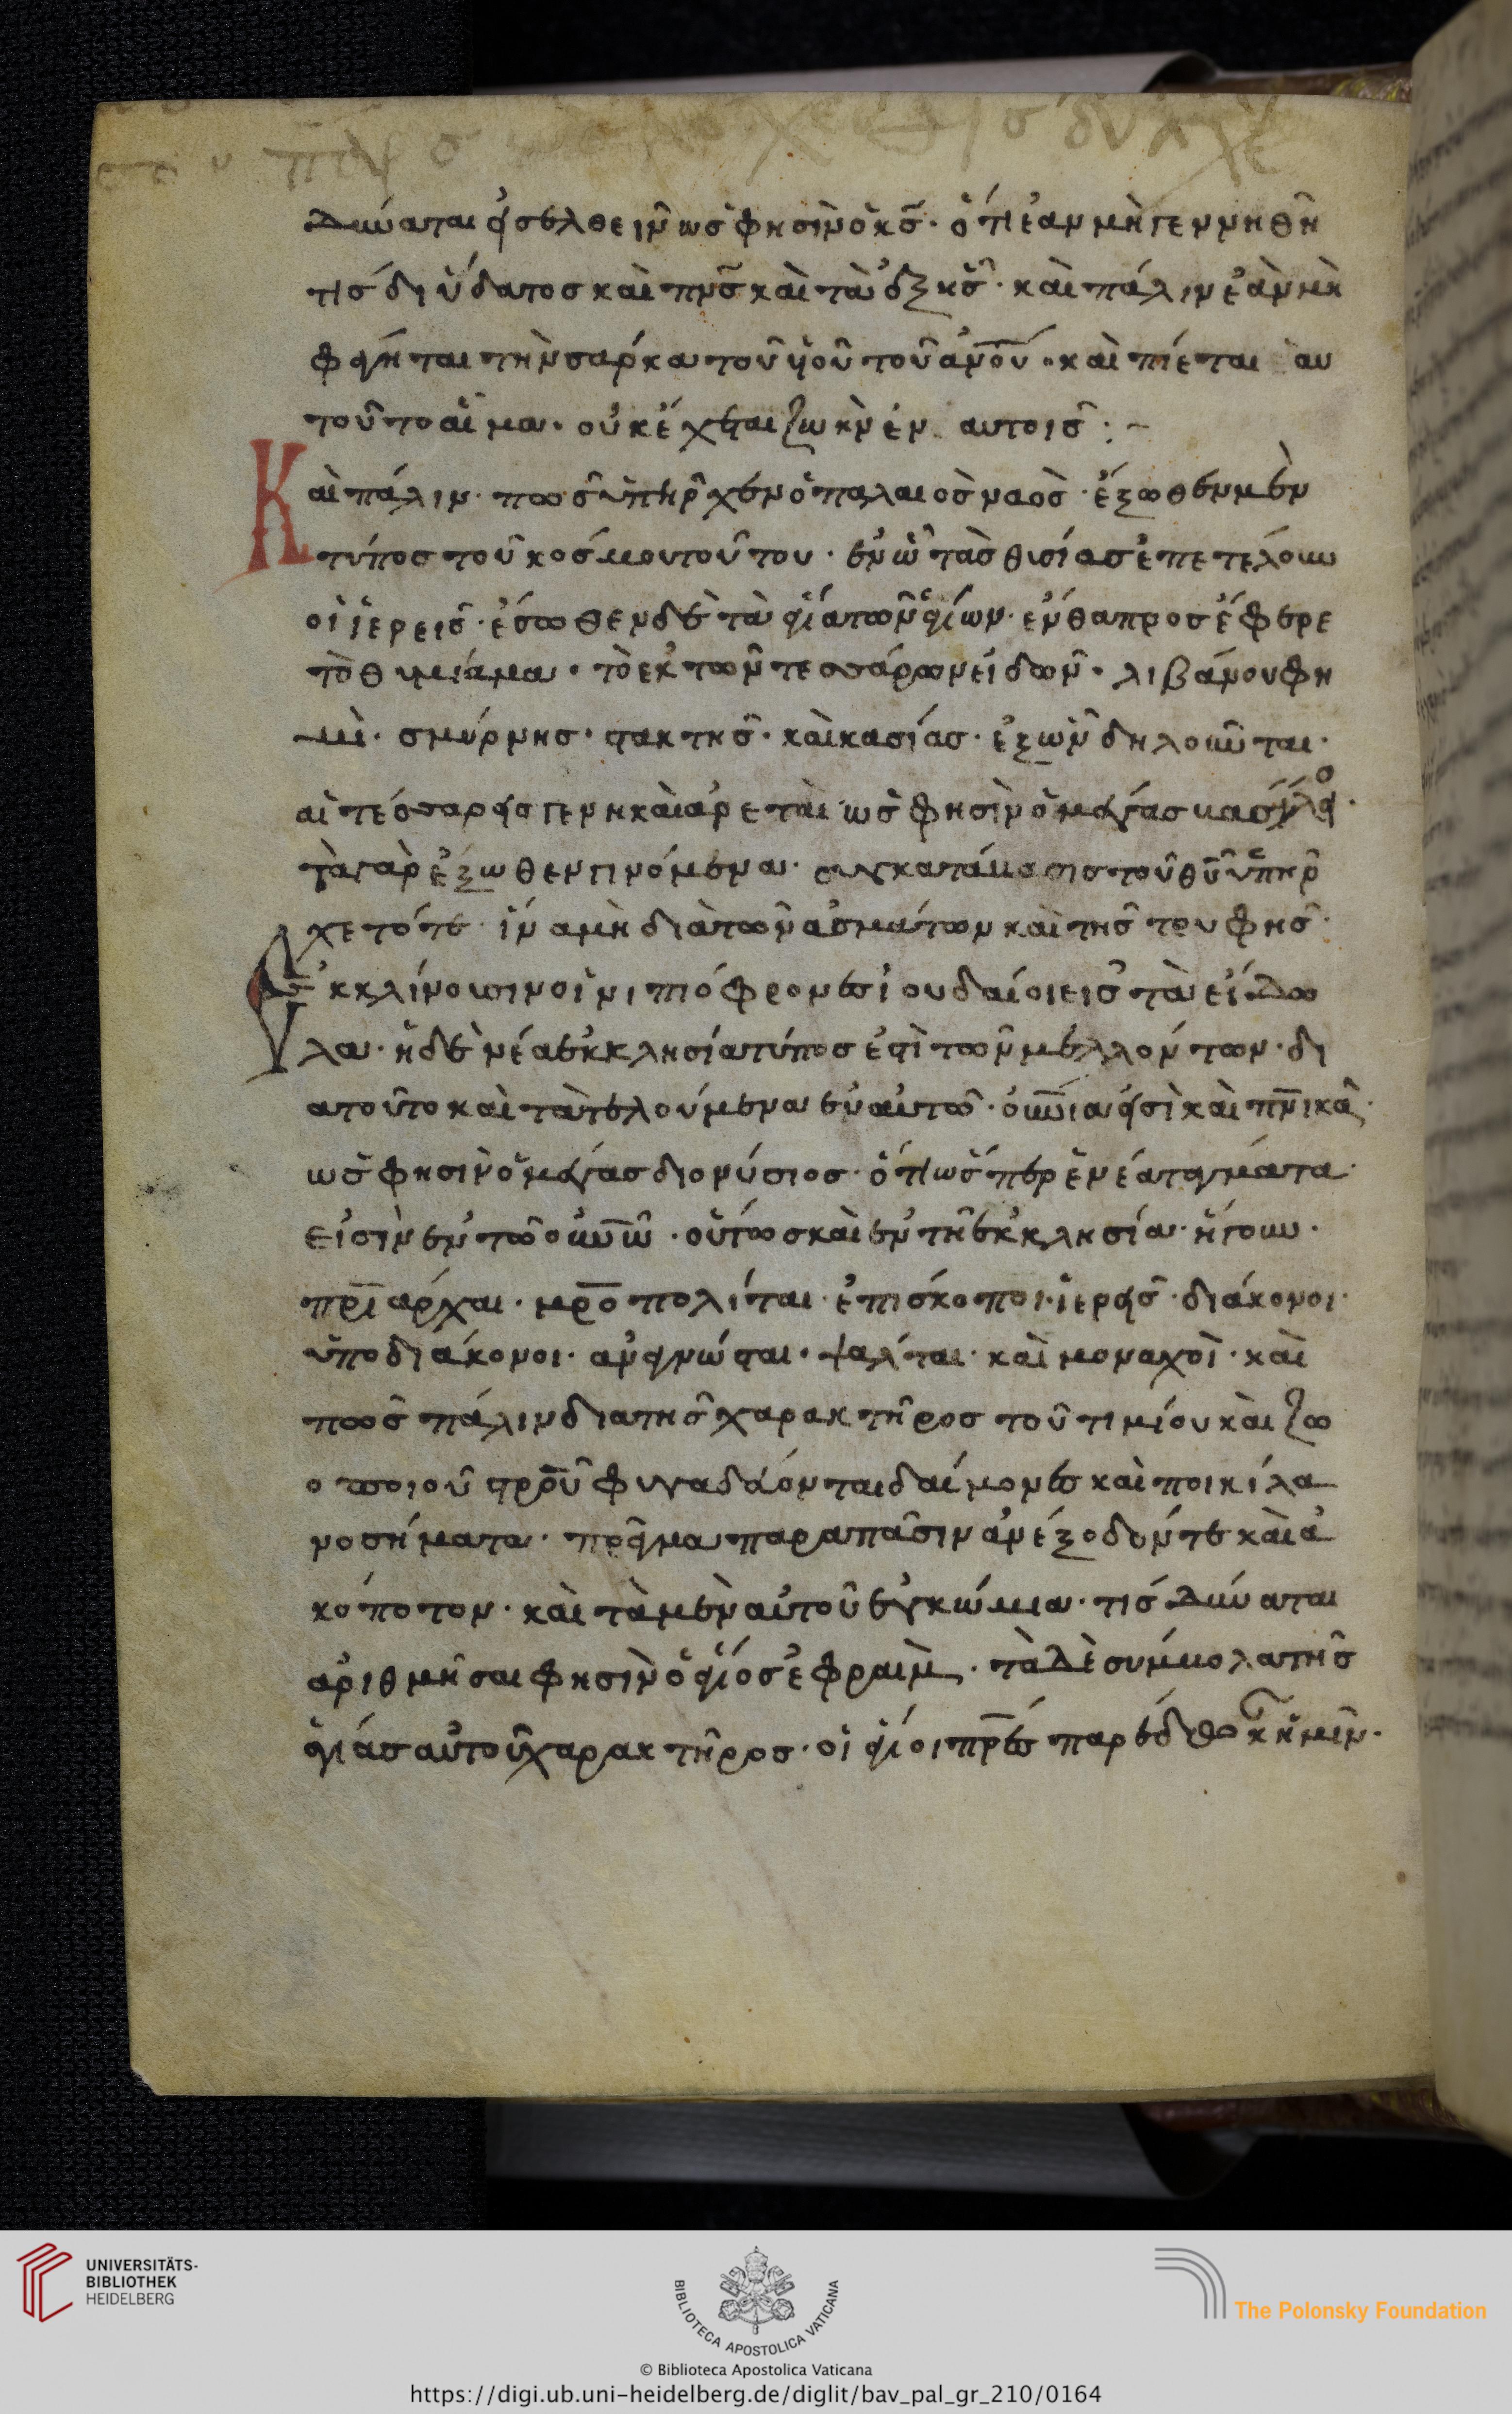 δύναται εἰσελθεῖν ὡς φησὶν ὁ κς̅· ὅτι ἐαν μὴ γεννηθῆ
τίς δι ὕδατος καὶ πνς̅ καὶ τὰ ἑξῆς· καὶ πάλιν ἐὰν μὴ
φάγηται τὴν σάρκα τοῦ υἱοῦ τοῦ ἀνο̅υ· καὶ πίεται αυ
τοῦ το αἷμα· οὐκ ἔχεται ζωὴν ἐν αυτοις :~
Καὶ πάλιν· πῶς ὑπῆρχεν ὁ παλαιος ναος· ἔξωθεν μὲν
τύπος τοῦ κόσμου τούτου· ἐν ὧ τὰς θισίας ἐπετέλουν
οἱ ἱερεῖς· ἔσωθεν δὲ τὰ ἅγια τῶν ἁγίων· ἔνθα προσέφερε
τὸ θυμίαμα· τὸ ἐκ τῶν τεσσάρων είδῶν· λιβάνου φη
μὶ· σμύρνης· στακτῆς· καὶ κασίας· ἐξ ὧν δηλοῦνται·
αἱ τέσσαρεις γενηκαὶ ἀρεταὶ ὡς φησὶν ὁ μέγας βασίλειος·
τὰ γὰρ ἔξωθεν γινόμενα· συγκατάβασις τοῦ θῦ ὑπῆρ
χε τότε· ἵνα μὴ διὰ τῶν ἀσμάτων καὶ τῆς τρυφῆς·
ἐκκλίνουσιν οἱ νιπιόφρονες ἰουδαίοι εις τὰ εἴδω
λα· ἡ δὲ νέα ἐκκλησία τύπος ἐστὶ τῶν μελλόντων· δι
ατοῦτο καὶ τὰ τελούμενα ἐν αὐτῶ· οὐνια εἰσὶ καὶ πνικὰ·
ὡς φησὶν ὁ μέγας διονύσιος· ὅτι ὥσπερ ἐνέα ταγματα
εἰσὶν ἐν τῶ οὐνῶ· οὕτως καὶ ἐν τῆ ἐκκλησία· ἤγουν·
πρι̅άρχαι· μρο̅πολίται· ἐπισκοποι· ἱερεῖς· διάκονοι·
ὑποδιάκονοι· ἀναγνώσται· ψαλται· καὶ μοναχοὶ· καὶ
πῶς πάλιν δια τῆς χαρακτῆρος τοῦ τιμίου καὶ ζω
οποιοῦ στρο̅ῦ φυγαδεύονται δαίμονες καὶ ποικίλα
νοσήματα· πρᾶγμα παραπᾶσιν ἀνέξοδόν τε καὶ ἀ
κόποτον· καὶ τὰ μὲν αὐτοῦ ἐγκώμια· τίς δύναται
ἀριθμῆσαι φησὶν ὁ ἅγιος ἐφραὶμ· τὰ δὲ σύμβολα τῆς
ἁγίας αὐτοῦ χαρακτῆρος· οἱ ἅγιοι πρε̅ς παρέδωκαν ἡμῖν·
UNIVERSITÄTS-
BIBLIOTHEK
HEIDELBERG
BIBLIOTECA APOSTOLICA VATICANA
The Polonsky Foundation
© Biblioteca Apostolica Vaticana
https://digi.ub.uni-heidelberg.de/diglit/bav_pal_gr_210/0164